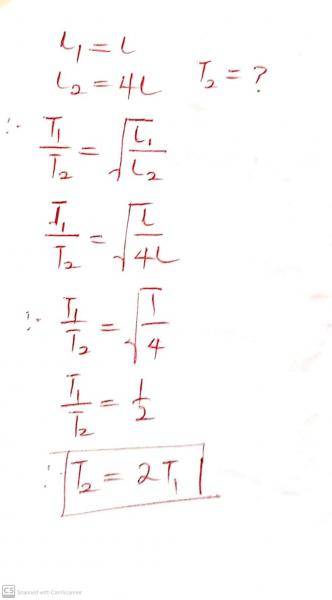 L₁ = L
L₂ = 4L T₂ = ?
∴ T₁/T₂ = √(L₁/L₂)
T₁/T₂ = √(L/4L)
∴ T₁/T₂ = √(1/4)
T₁/T₂ = 1/2
∴ T₂ = 2T₁
CS Scanned with CamScanner